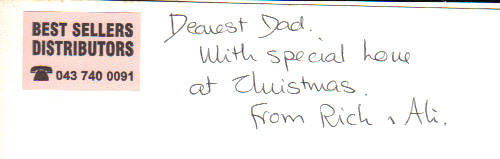 BEST SELLERS
DISTRIBUTORS
☎ 043 740 0091
Dearest Dad.
With special love
at Christmas.
From Rich & Ali.